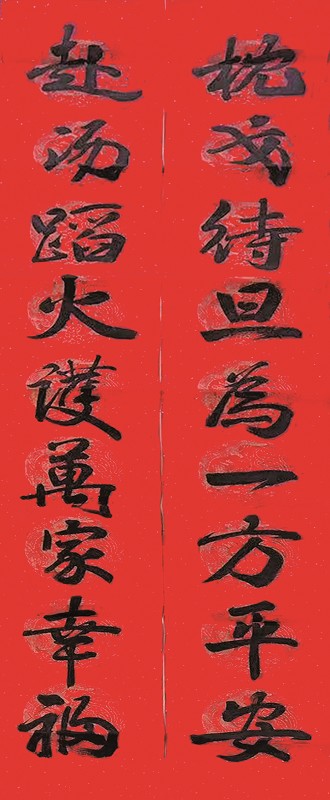 枕戈待旦為一方平安
赴汤蹈火護萬家幸福